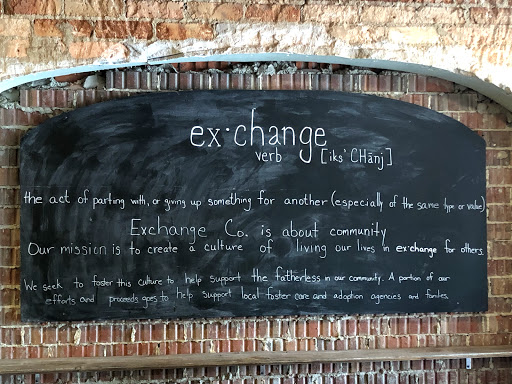 ex·change
verb [iks'CHānj]
the act of parting with, or giving up something for another (especially of the same type or value)
Exchange Co. is about community
Our mission is to create a culture of living our lives in ex·change for others.
We seek to foster this culture to help support the fatherless in our community. A portion of our
efforts and proceeds goes to help support local foster care and adoption agencies and families.